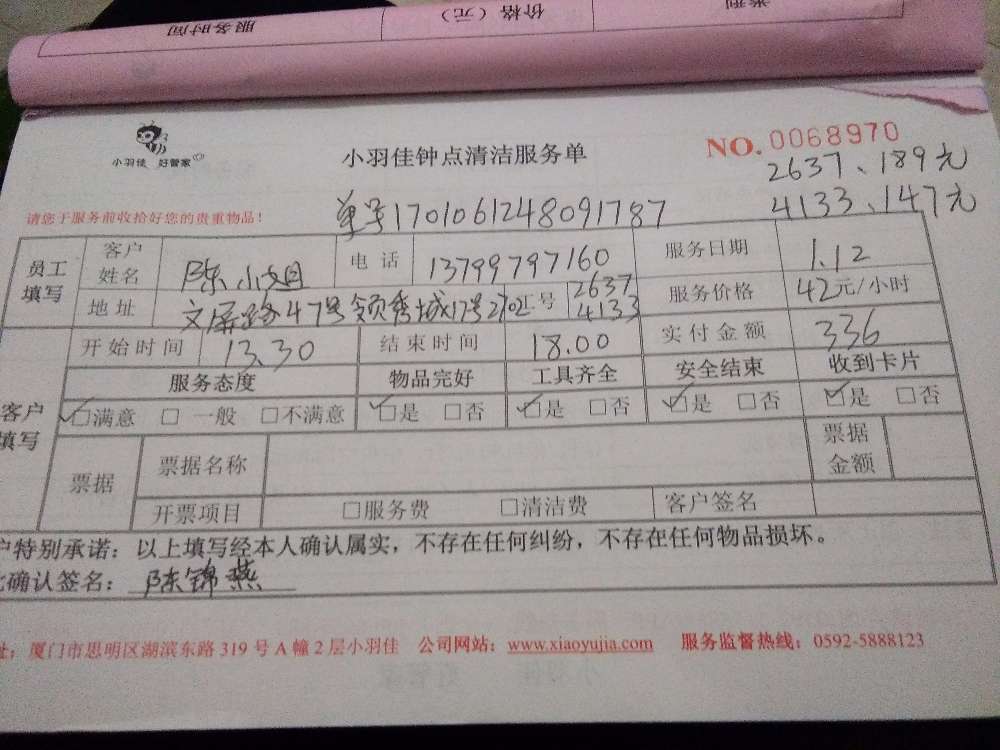 服务时间 价格（元） 类别
小羽佳 好管家
小羽佳钟点清洁服务单
NO.0068970
2637、189元
4133、147元
请您于服务前收拾好您的贵重物品！
单号1701061248091787
员工填写 客户姓名 陈小姐 电话 13799797160 服务日期 1.12
地址 文屏路47号领秀城17号2702 工号 2637 4133 服务价格 42元/小时
开始时间 13.30 结束时间 18.00 实付金额 336
客户填写 服务态度 物品完好 工具齐全 安全结束 收到卡片
☑满意 □一般 □不满意 ☑是 □否 ☑是 □否 ☑是 □否 ☑是 □否
票据 票据名称 票据金额
开票项目 □服务费 □清洁费 客户签名
户特别承诺：以上填写经本人确认属实，不存在任何纠纷，不存在任何物品损坏。
确认签名：陈锦燕
址：厦门市思明区湖滨东路319号A幢2层小羽佳 公司网站：www.xiaoyujia.com 服务监督热线：0592-5888123